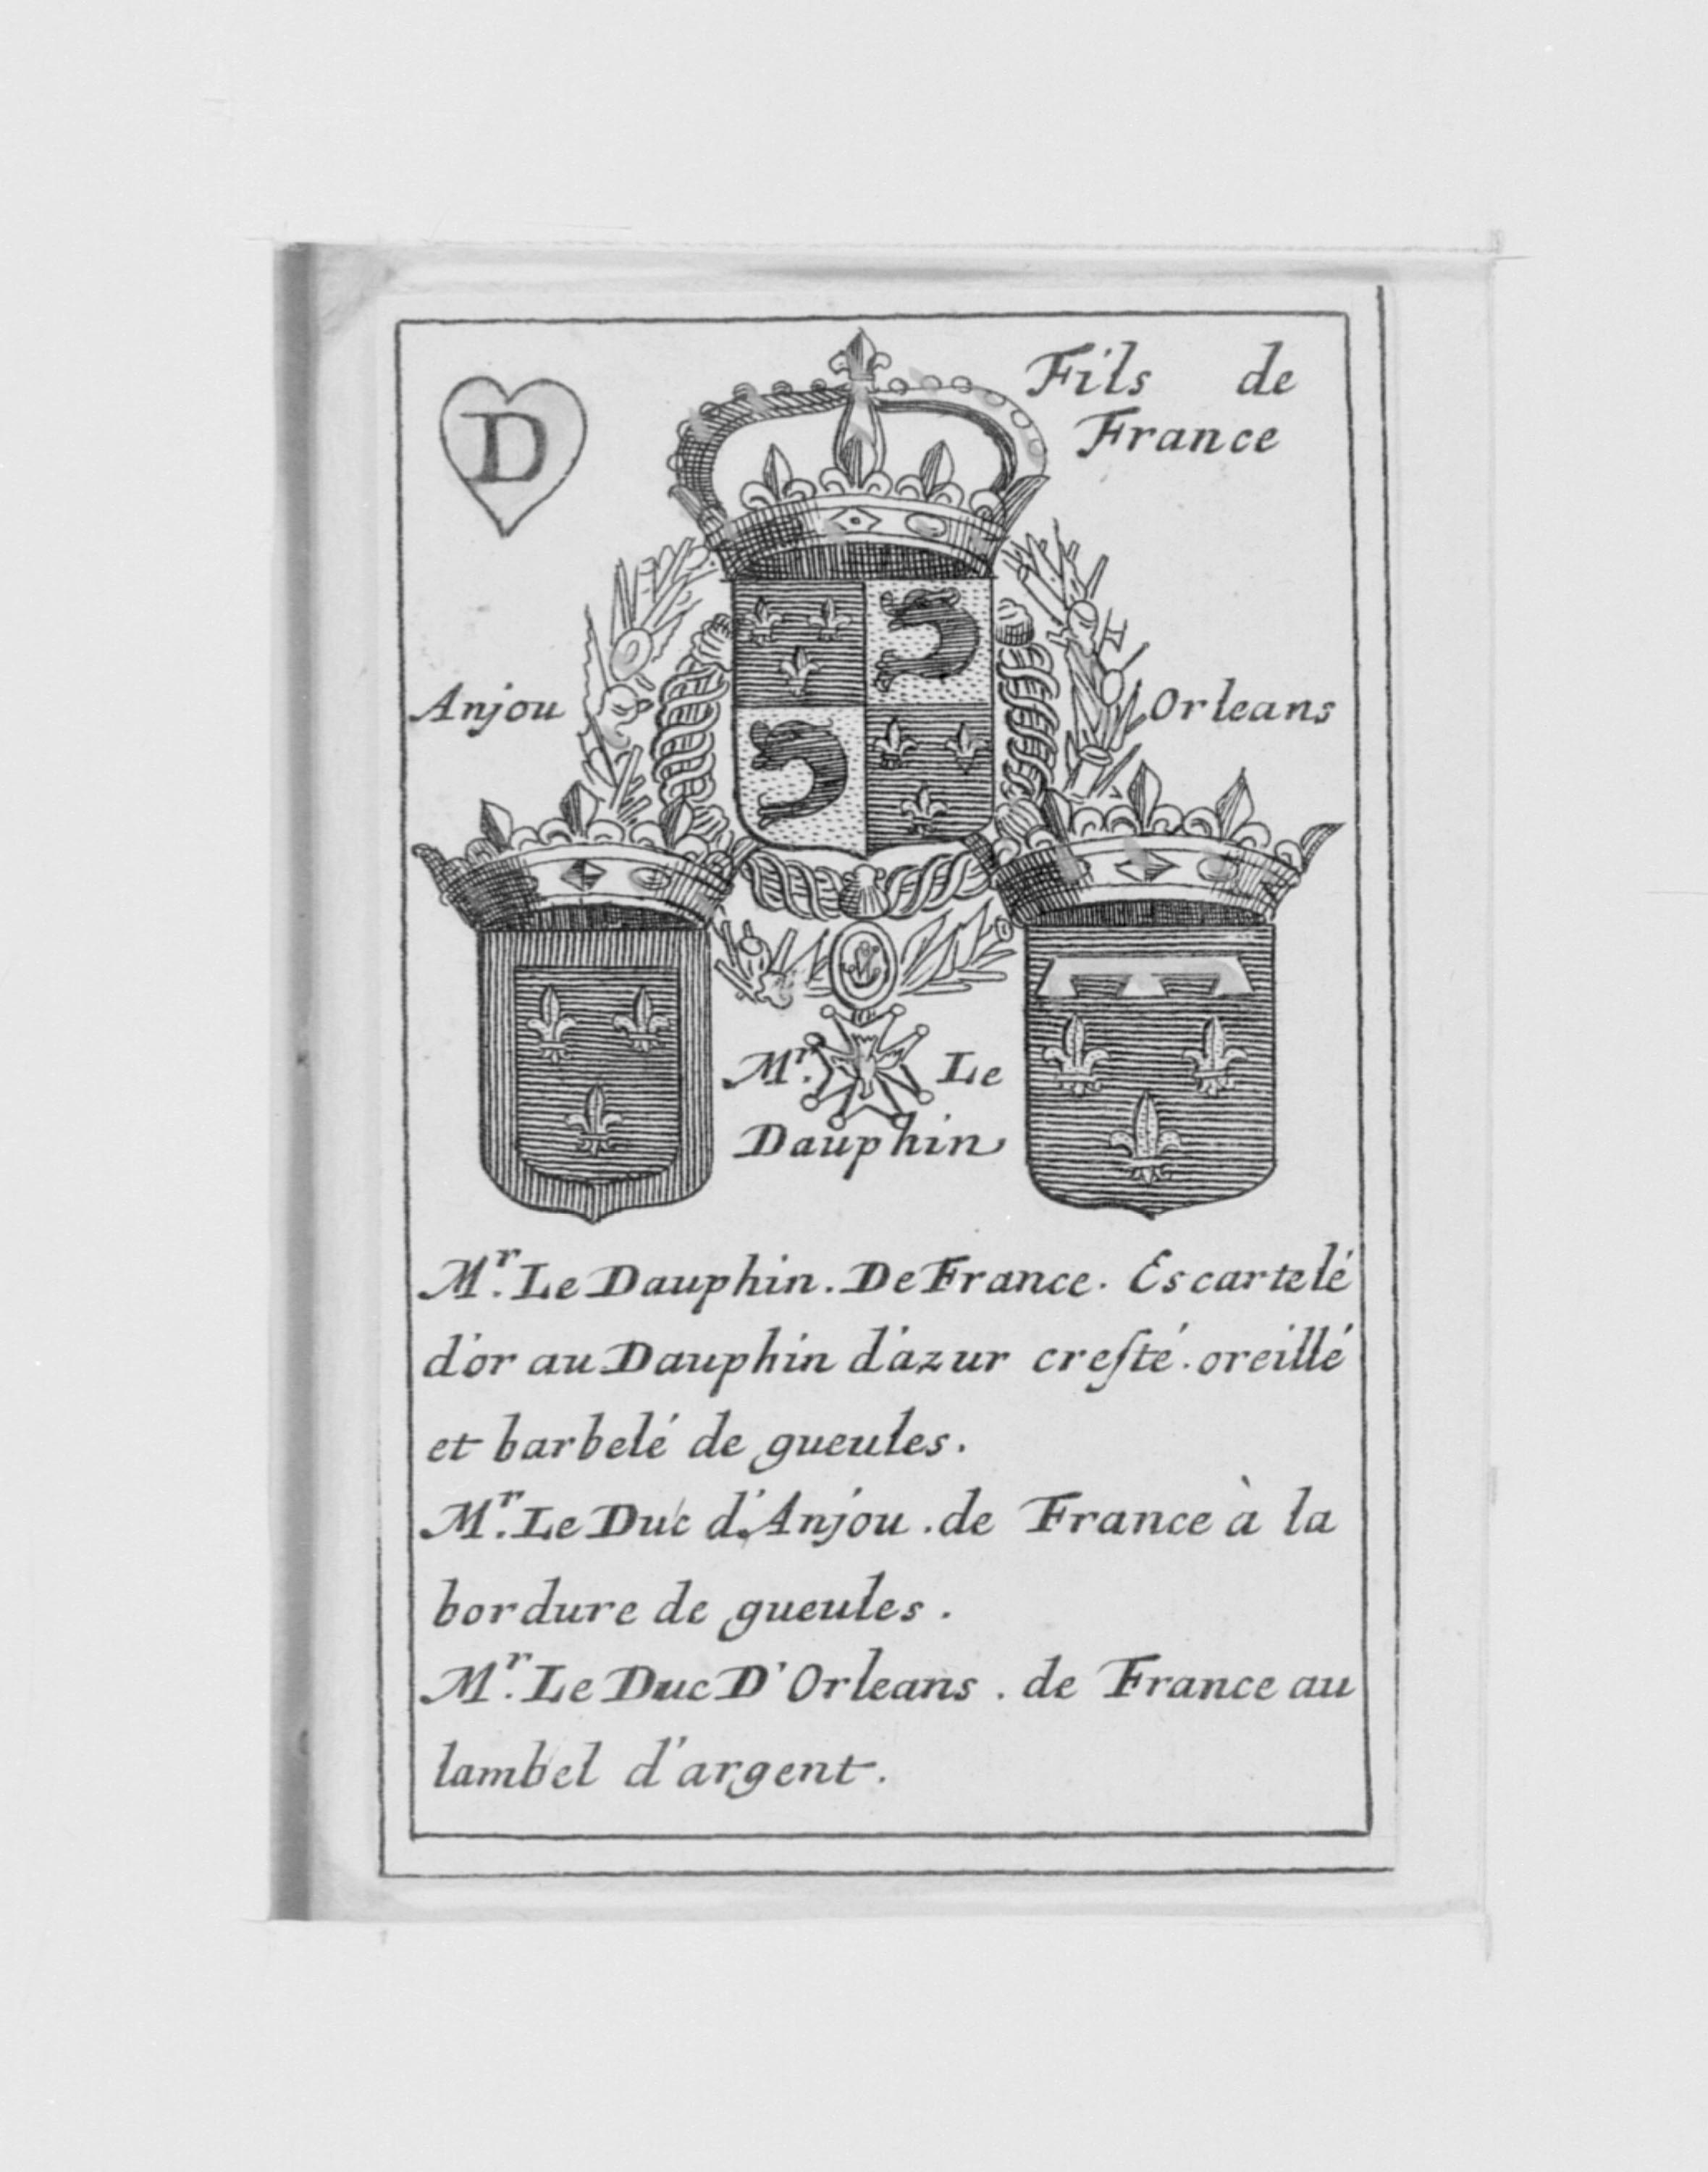 D
Fils de
France
Anjou
Orleans
Mr. Le
Dauphin
Mr. Le Dauphin. De France. Escartelé
d'or au Dauphin d'azur creſté. oreillé
et barbelé de gueules.
Mr. Le Duc d'Anjou. de France à la
bordure de gueules.
Mr. Le Duc D'Orleans. de France au
lambel d'argent.